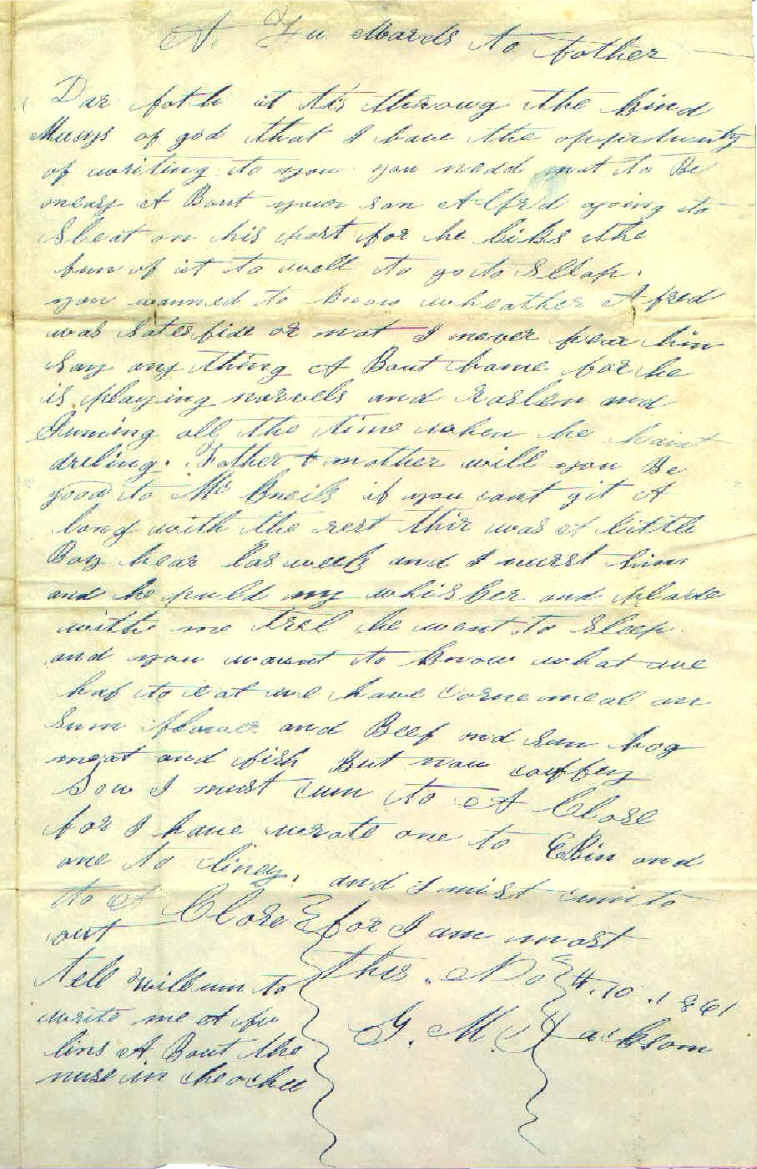 A Fu Wards to Father
Dar fath it tis throug the kind
Mursys of god that I have the oppurtunity
of writing to you you nedd not to Be
oneasy A Bout your son Alfrd going to
Sleat on his post for he likes the
fun of it to well to go to Sleap.
you wanned to know wheather Afred
was sates fide or not I never hear him
Say any thing A Bout home for he
is playing marvels and raslen and
Juming all the time when he haint
driling. Father & mother will you Be
good to Mr if you cant git A
long with the rest thir was A little
Boy hear las week and I nurst him
and he puld my whisker and plade
with me tel he went to Sleep
and you wount to know what we
had to eat we have corne meal an
Sum flower and Beef and Sum hog
meat and fish But now coffey
Sow I must cum to A Close
for I have wrote one to and
one to and I must cum to
to A Close for I am most
out
this. No 4. 10. 1861
G. M. Jackson
tell willium to
write me A fu
lins A Bout the
nuse in